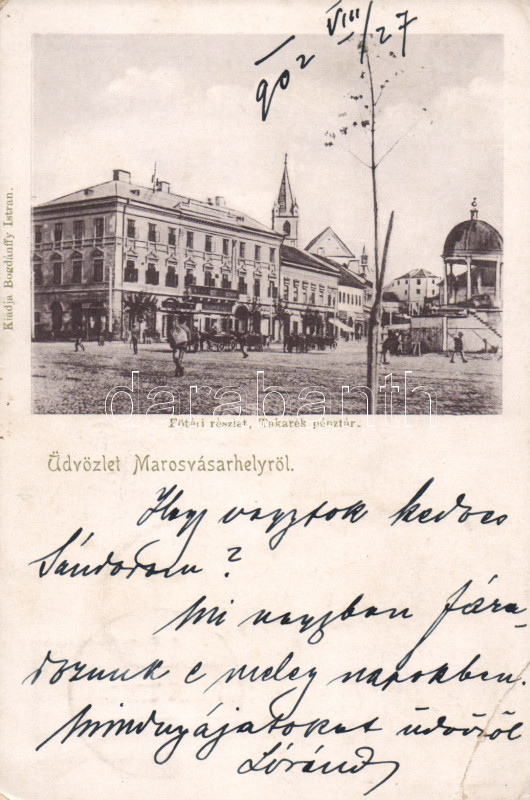 902 VIII/27
Kiadja Bogdánffy Istran.
darabanth
Főtéri részlet, Takarék pénztár.
Üdvözlet Marosvásarhelyröl.
Hogy vagytok kedves
Sándorom?
Mi nagyban fára-
dozunk e meleg napokban.
Mindnyájatokat üdvözöl
Lóránd